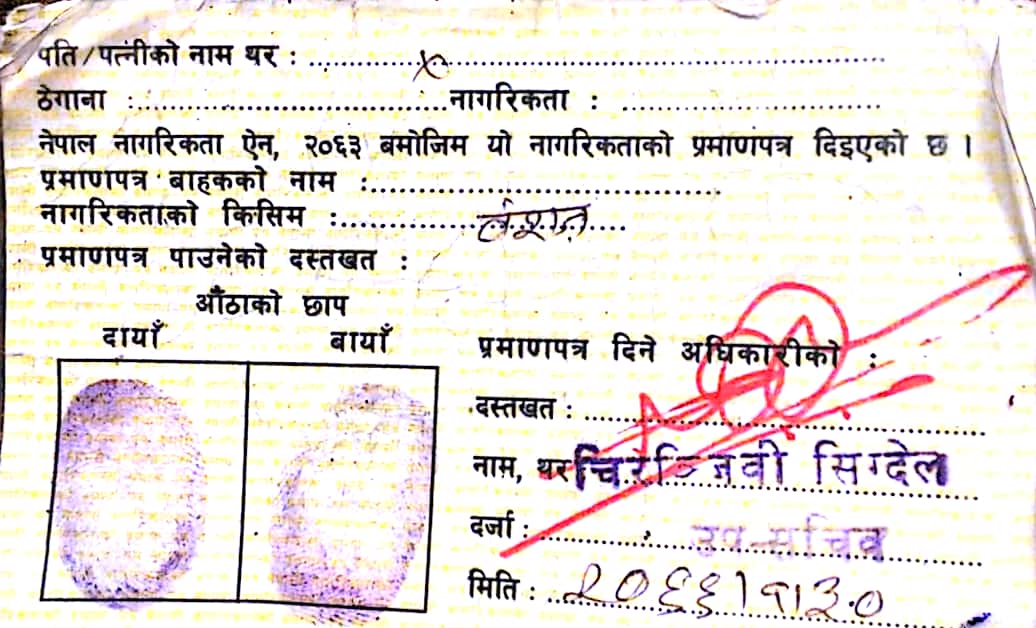 पति/पत्नीको नाम थर : ........×........
ठेगाना :........नागरिकता : ........
नेपाल नागरिकता ऐन, २०६३ बमोजिम यो नागरिकताको प्रमाणपत्र दिइएको छ ।
प्रमाणपत्र बाहकको नाम :........
नागरिकताको किसिम :........वंशज....
प्रमाणपत्र पाउनेको दस्तखत :
औंठाको छाप
दायाँ बायाँ
प्रमाणपत्र दिने अधिकारीको :
दस्तखत : ........
नाम, थर चिरञ्जिवी सिग्देल
दर्जा : उप-सचिव
मिति : २०६६।१।३०